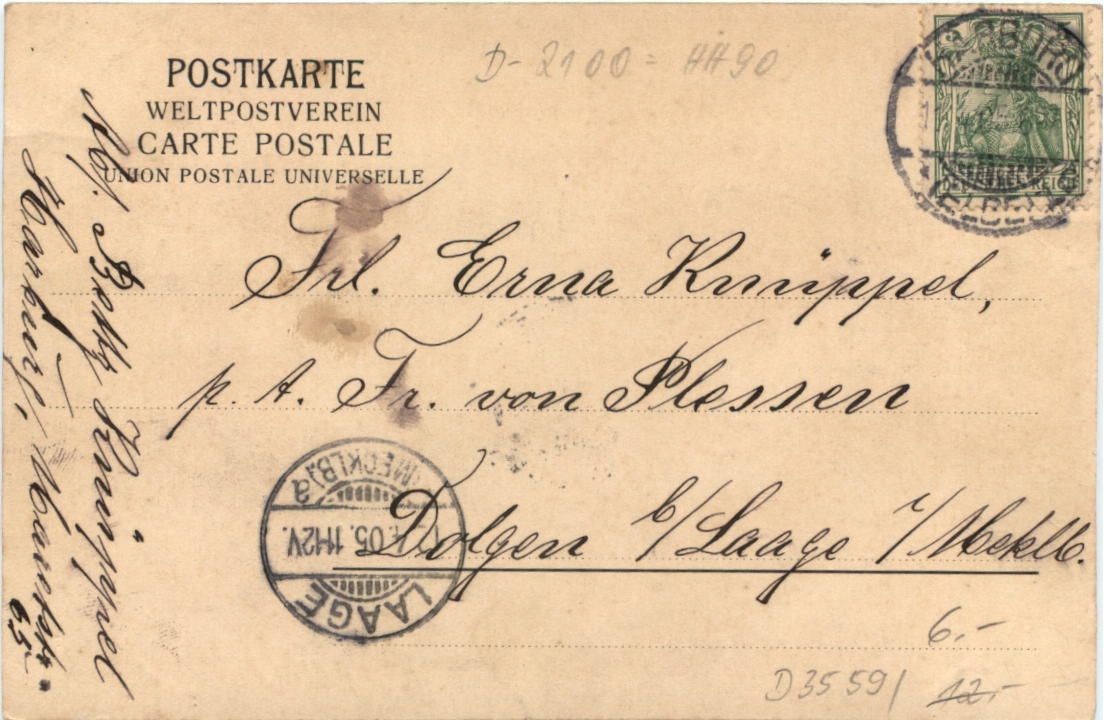 POSTKARTE
WELTPOSTVEREIN
CARTE POSTALE
UNION POSTALE UNIVERSELLE
D-2100 = HH90
HARBURG
(ELBE)
DEUTSCHES REICH
Frl. Erna Knüppel,
p. A. Fr. von Plessen
Dolgen b/Laage i/Meklb.
Abs. Betty Knüppel
Harburg,
65
LAAGE
05. 11-12V.
(MECKLB.)
a
6.-
D3559/ 12.-